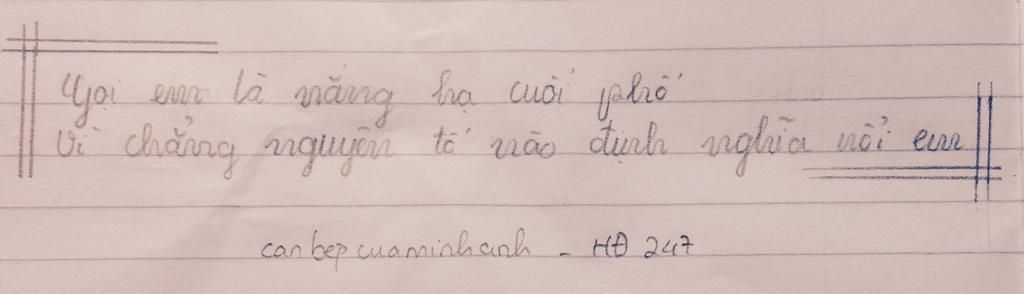 Gọi em là nắng hạ cuối phố
Vì chẳng nguyên tố nào định nghĩa nổi em
canbepcuaminhanh - HĐ 247